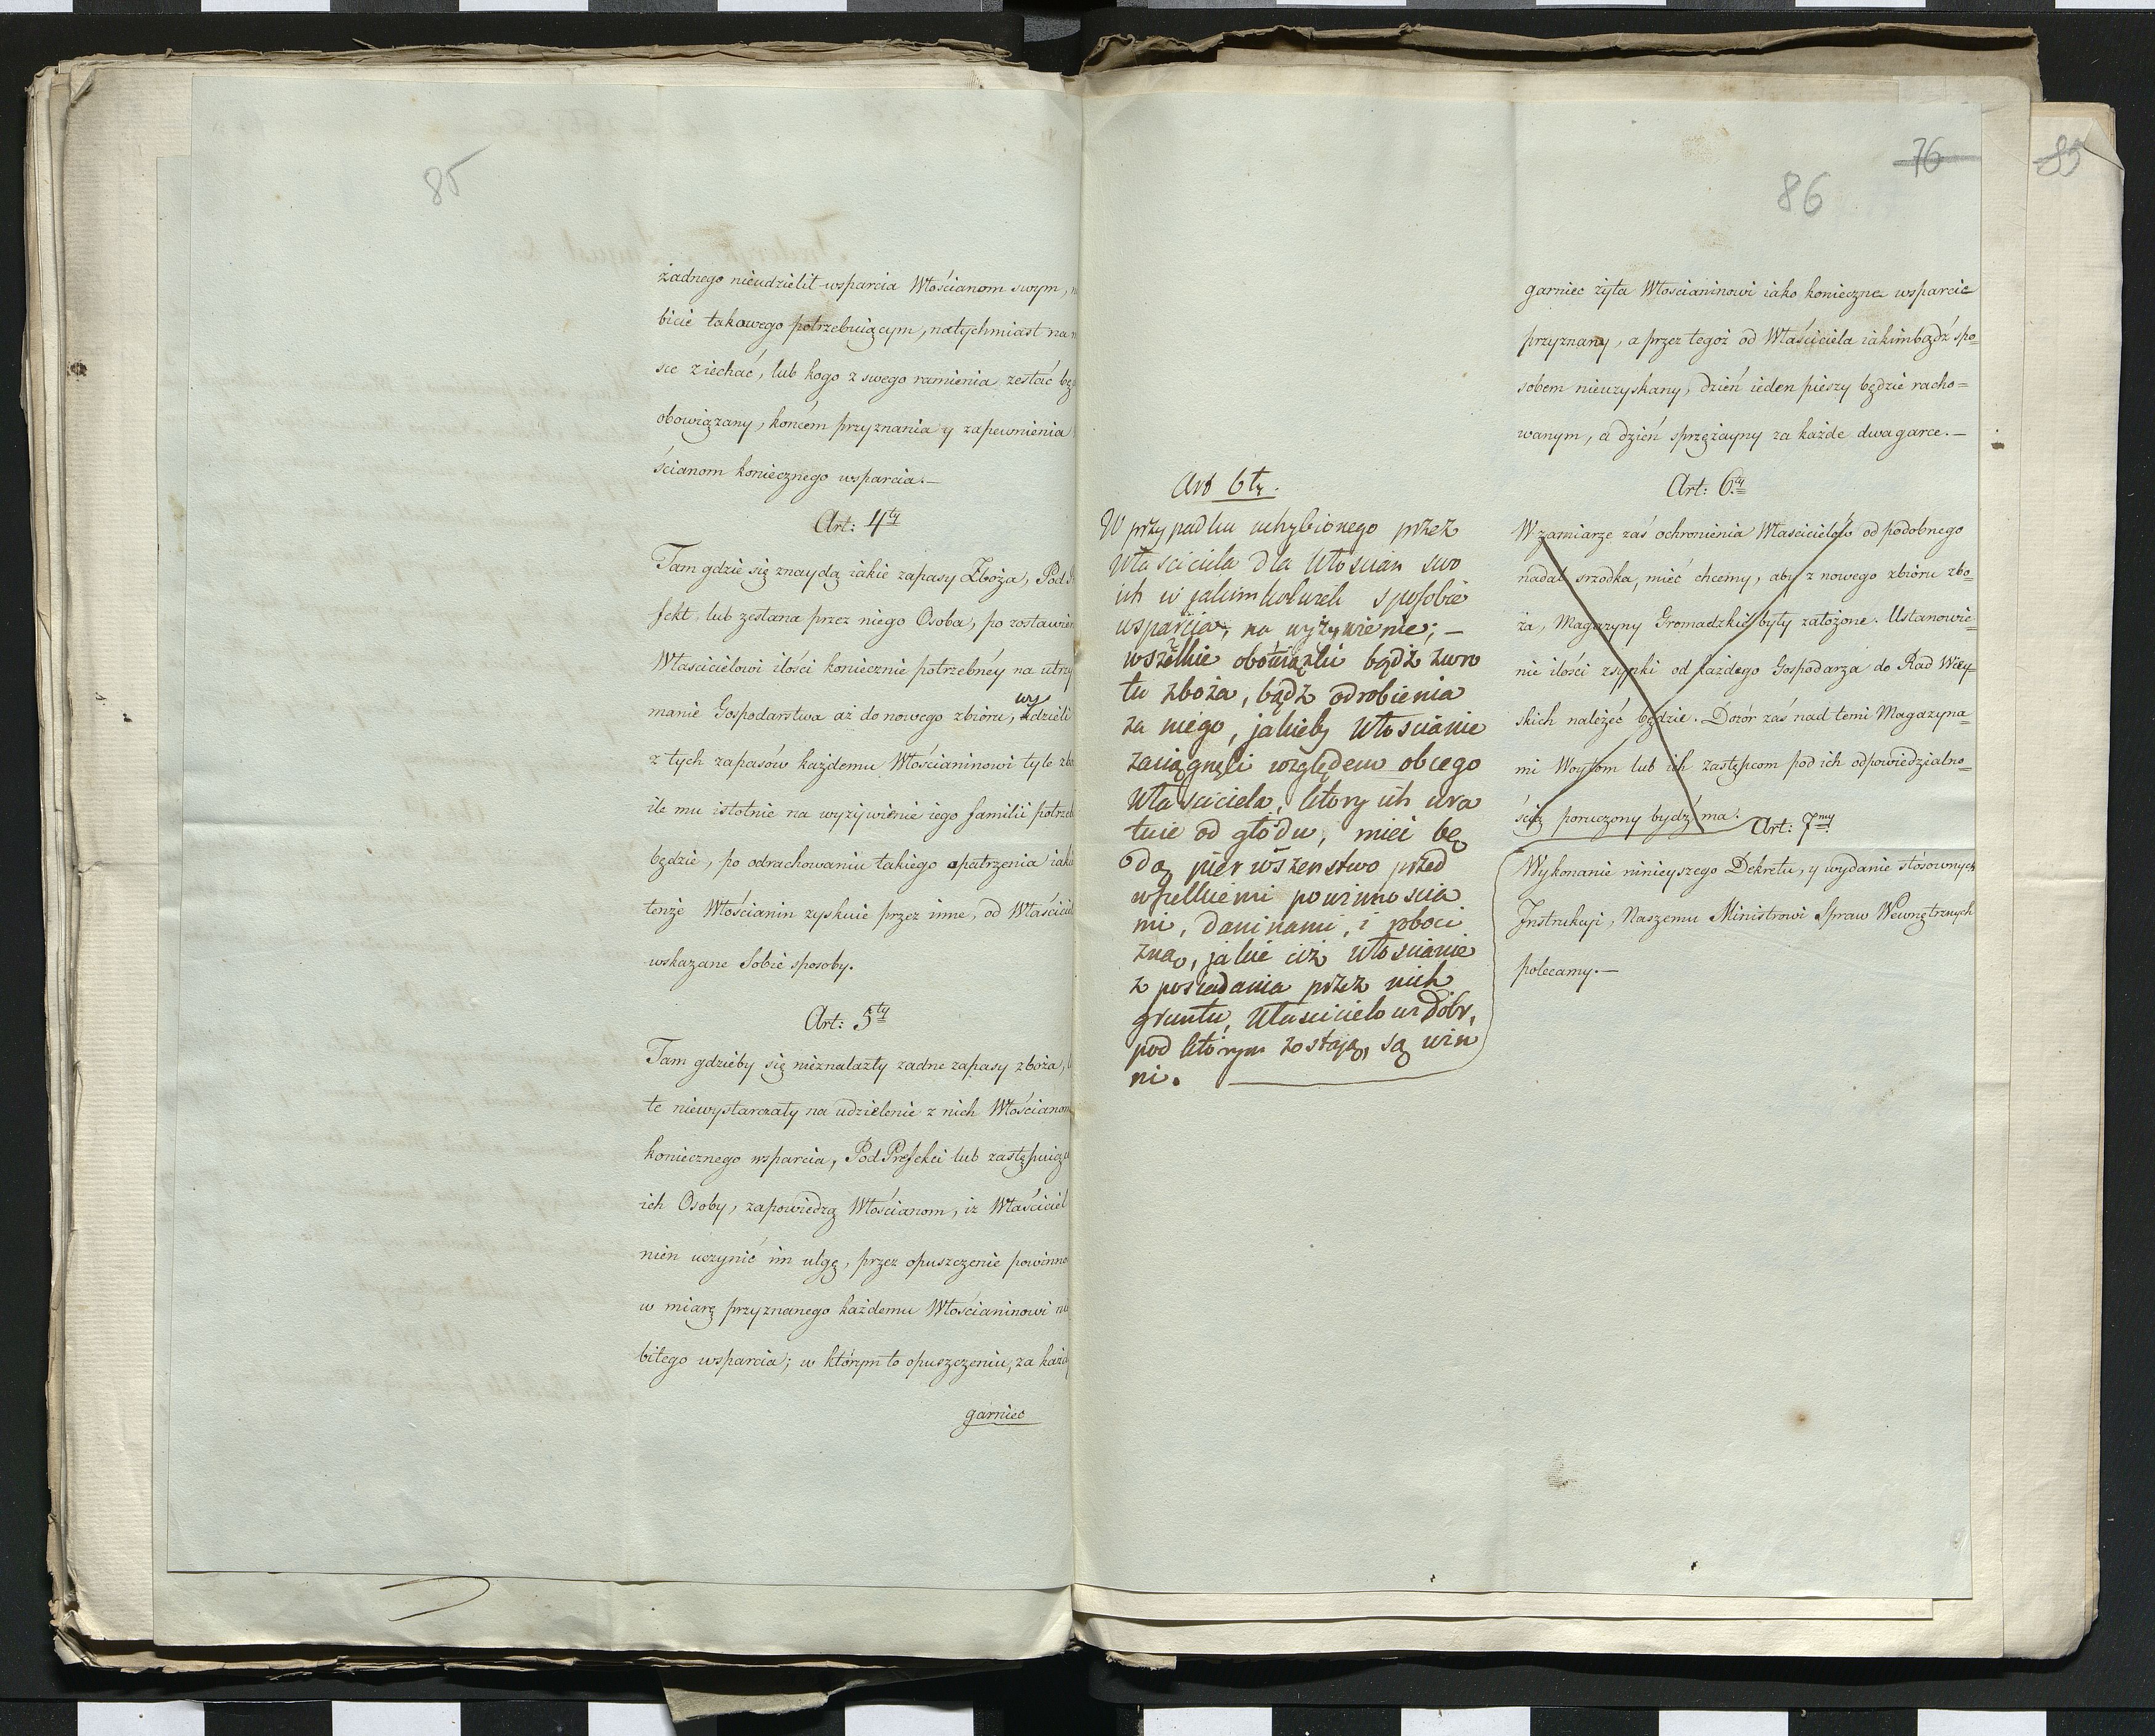 85
żadnego nieudzielił wsparcia Włościanom swym,
bicie takowego potrzebuiącym, natychmiast na
sce ziechać, lub kogo z swego ramienia zesłać bę
obowiązany, końcem przyznania y zapewnienia
ścianom koniecznego wsparcia.—
Art: 4ty
Tam gdzie się znaydą iakie zapasy Zboża, Pod
fekt, lub zesłana przez niego Osoba, po zostawien
Właścicielowi ilości koniecznie potrzebnéy na utrzy
manie Gospodarstwa aż do nowego zbioru, wydzieli
z tych zapasów każdemu Włościaninowi tyle zbo
ile mu istotnie na wyżywienie iego familii potrzeb
będzie, po odrachowaniu takiego opatrzenia iaki
tenże Włościanin zyskuie przez inne, od Właściciel
wskazane sobie sposoby.
Art: 5ty
Tam gdzieby się nieznalazły żadne zapasy zboża,
te niewystarczały na udzielenie z nich Włościanom
koniecznego wsparcia, PodPrefekci lub zastępuiąc
ich Osoby, zapowiedzą Włościanom, iż Właściciel
nien uczynić im ulgę, przez opuszczenie powinno
w miarę przyznanego każdemu Włościaninowi
bitego wsparcia; w którym to opuszczeniu, za każd
garniec
76
86
85
Art 6ty.
W przypadku uchybionego przez
Właściciela dla Włościan swo
ich w jakimkolwiek sposobie
wsparcia, na wyżywienie; —
wszelkie obowiązki bądź zwro
tu zboża, bądź odrobienia
za niego, jakieby Włościanie
zaciągnęli względem obcego
Właściciela, który ich ura
tuie od głodu, mieć bę
dą pierwszeństwo przed
wszelkiemi powinnościa
mi, daninami, i roboci
zną, jakie ciż Włościanie
z posiadania przez nich
gruntu, Właścicielowi Dóbr,
pod którym zostają, są win
ni.
garniec żyta Włościaninowi iako konieczne wsparcie
przyznany, a przez tegoż od Właściciela iakimbądź spo=
sobem nieuzyskany, dzień ieden pieszy będzie racho=
wanym, a dzień sprzężayny za każde dwa garce.—
Art: 6ty
W zamiarze zaś ochronienia Właścicielów od podobnego
nadal srzodka, mieć chcemy, aby z nowego zbioru zbo=
ża, Magazyny Gromadzkie były założone. Ustanowie=
nie ilości zsypki od każdego Gospodarza do Rad Wiey=
skich należeć będzie. Dozór zaś nad temi Magazyna=
mi Woytom lub ich zastępcom pod ich odpowiedzialno=
ścią poruczony bydź ma.
Art: 7my
Wykonanie ninieyszego Dekretu, y wydanie stósownych
Instrukcyi, Naszemu Ministrowi Spraw Wewnętrznych
polecamy.—